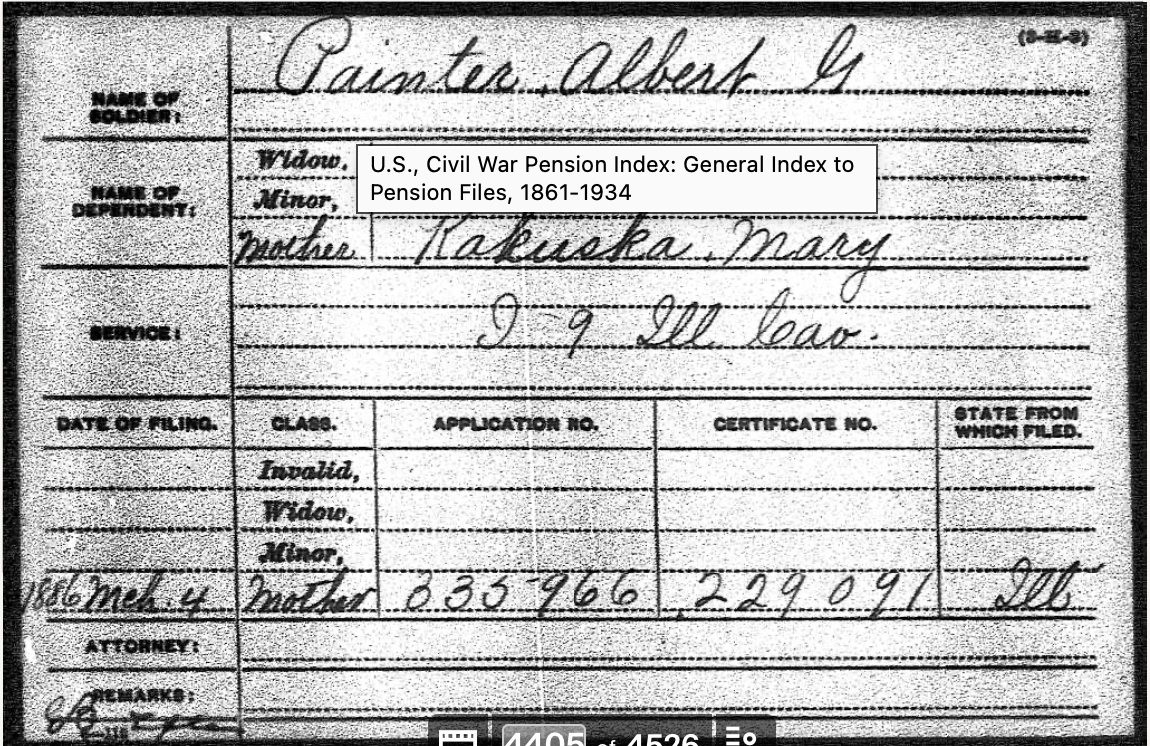 (3-H-3)
Painter, Albert G
NAME OF
SOLDIER:
Widow,
U.S., Civil War Pension Index: General Index to
Pension Files, 1861-1934
NAME OF
DEPENDENT:
Minor,
Mother Kakuska, Mary
SERVICE:
I 9 Ill Cav.
DATE OF FILING. CLASS. APPLICATION NO. CERTIFICATE NO. STATE FROM
WHICH FILED.
Invalid,
Widow,
Minor,
1886 Mch. 4 Mother 335966 229091 Ill
ATTORNEY:
REMARKS:
4405 of 4526